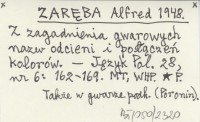 ZARĘBA Alfred 1948.
Z zagadnienia gwarowych
nazw odcieni i połączeń
kolorów. — Język Pol. 28,
nr 6: 162-169. MT, WHP. ★ P.
Także w gwarze podh. (Poronin).